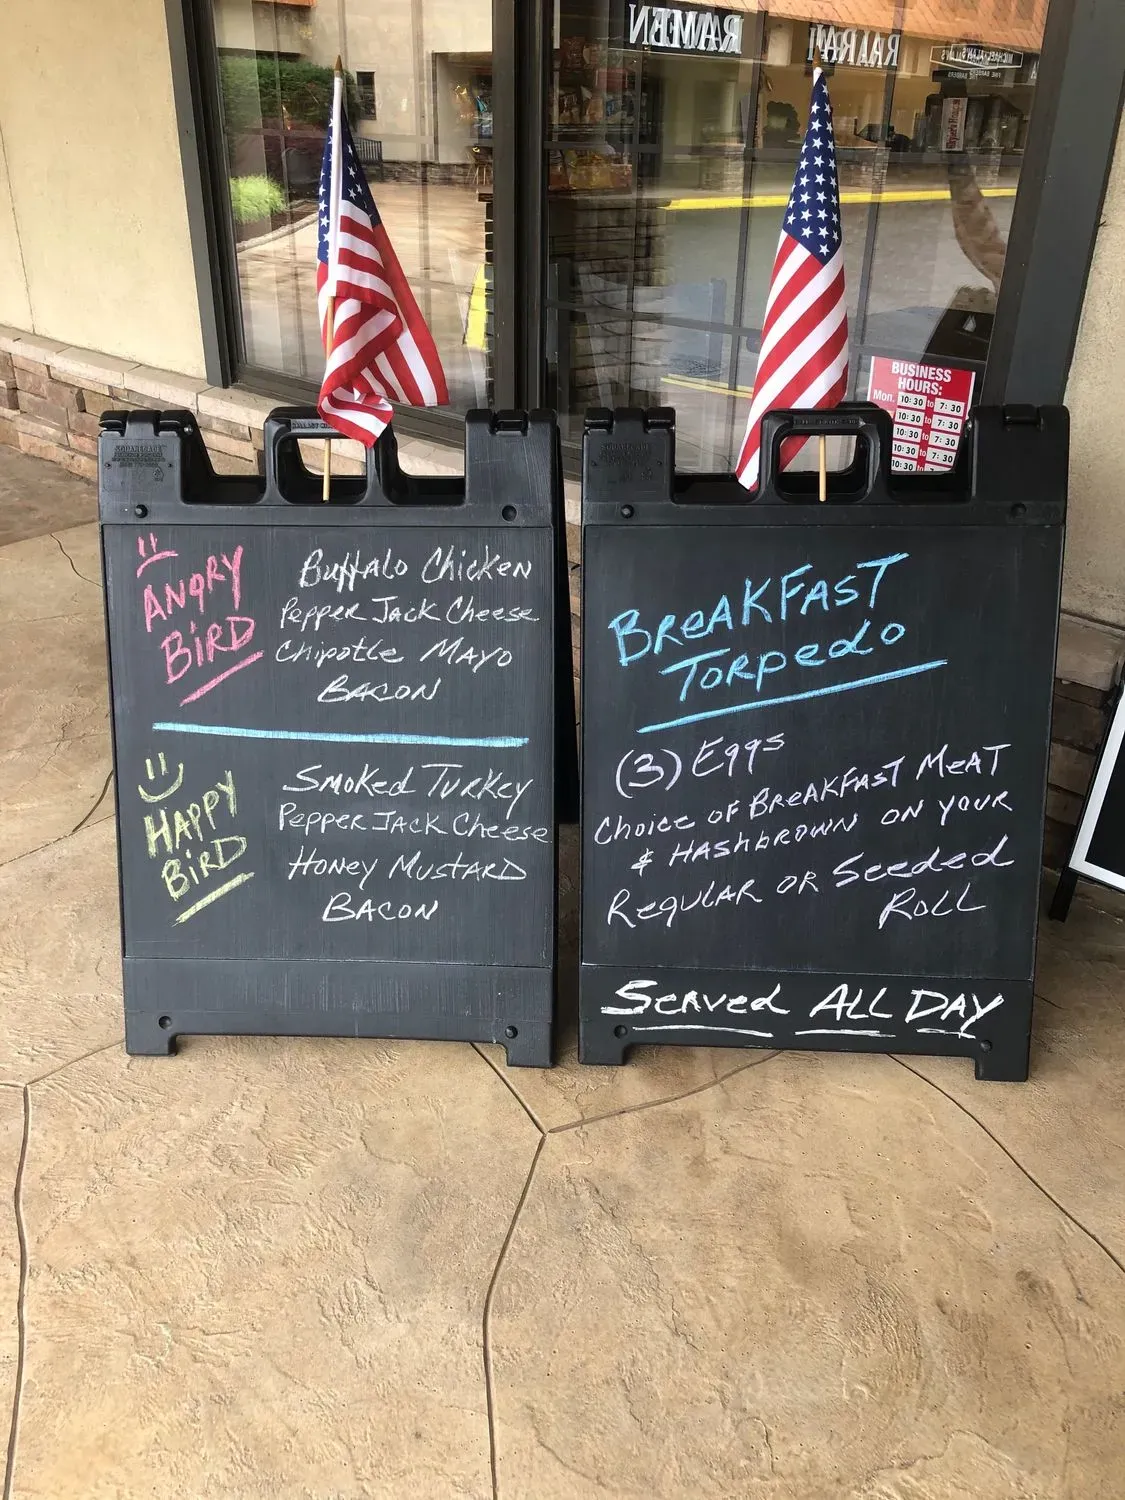 RAMEN
RAIRAI
MICHAEL ALAN'S
FINE BARBERS
BUSINESS
HOURS:
Mon. 10:30 to 7:30
10:30 to 7:30
10:30 to 7:30
10:30 to 7:30
ANGRY
BIRD
Buffalo Chicken
Pepper Jack Cheese
Chipotle Mayo
Bacon
HAPPY
BIRD
Smoked Turkey
Pepper Jack Cheese
Honey Mustard
Bacon
BREAKFAST
TORPEDO
(3) Eggs
Choice of Breakfast Meat
& Hashbrown on your
Regular or Seeded
Roll
Served All Day